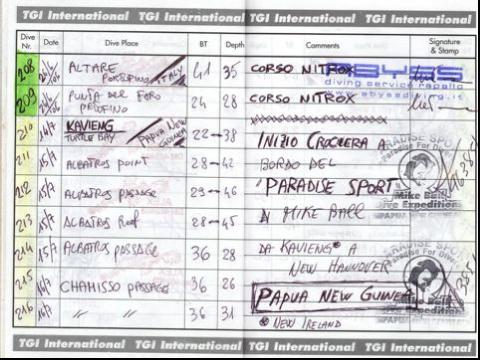 TGI International TGI International TGI International TGI International
Dive Nr. Date Dive Place BT Depth Comments Signature & Stamp
208 ALTARE PORTOFINO ITALY 41 35 CORSO NITROX
ABYSS
diving service rapallo
209 PUNTA DEL FARO PTOFINO 24 28 CORSO NITROX
210 14/7 KAVIENG TURTLE BAY PAPUA NEW GUINEA 22-38 INIZIO CROCIERA A
211 15/7 ALBATROS POINT 28-42 BORDO DEL
212 15/7 ALBATROS PASSAGE 29-46 "PARADISE SPORT"
213 15/7 ALBATROS Reef 28-45 DI MIKE BALL
214 15/7 ALBATROS PASSAGE 36 28 DA KAVIENG* A
NEW HANNOVER
215 16/7 CHAMISSO PASSAGE 36 26 PAPUA NEW GUINEA
216 16/7 " " 36 31 * NEW IRELAND
PARADISE SPORT
Paradise For Divers
Mike Ball
Dive Expeditions
TGI International TGI International TGI International TGI International